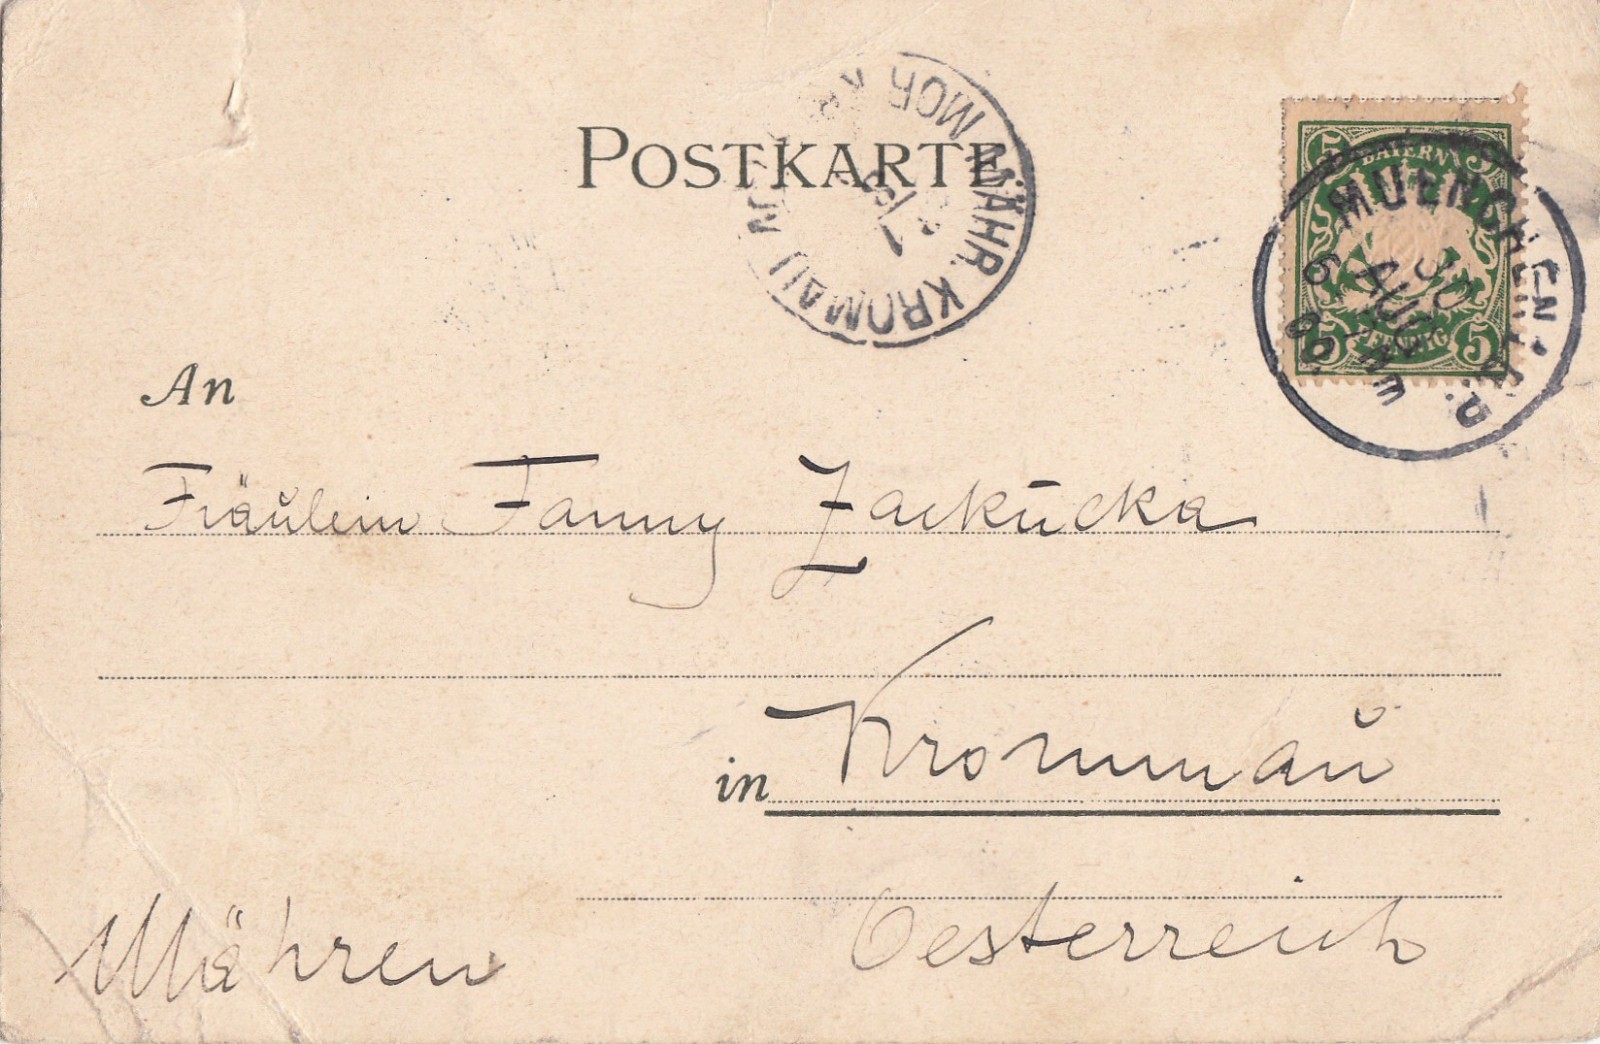 POSTKARTE
MÄHR. KROMAU
MOR. KR
BAYERN
5 5
PFENNIG
5 5
MUENCHEN
30
AUG
6
99
An
Fräulein Fanny Zackucka
in Krommau
Mähren Oesterreich